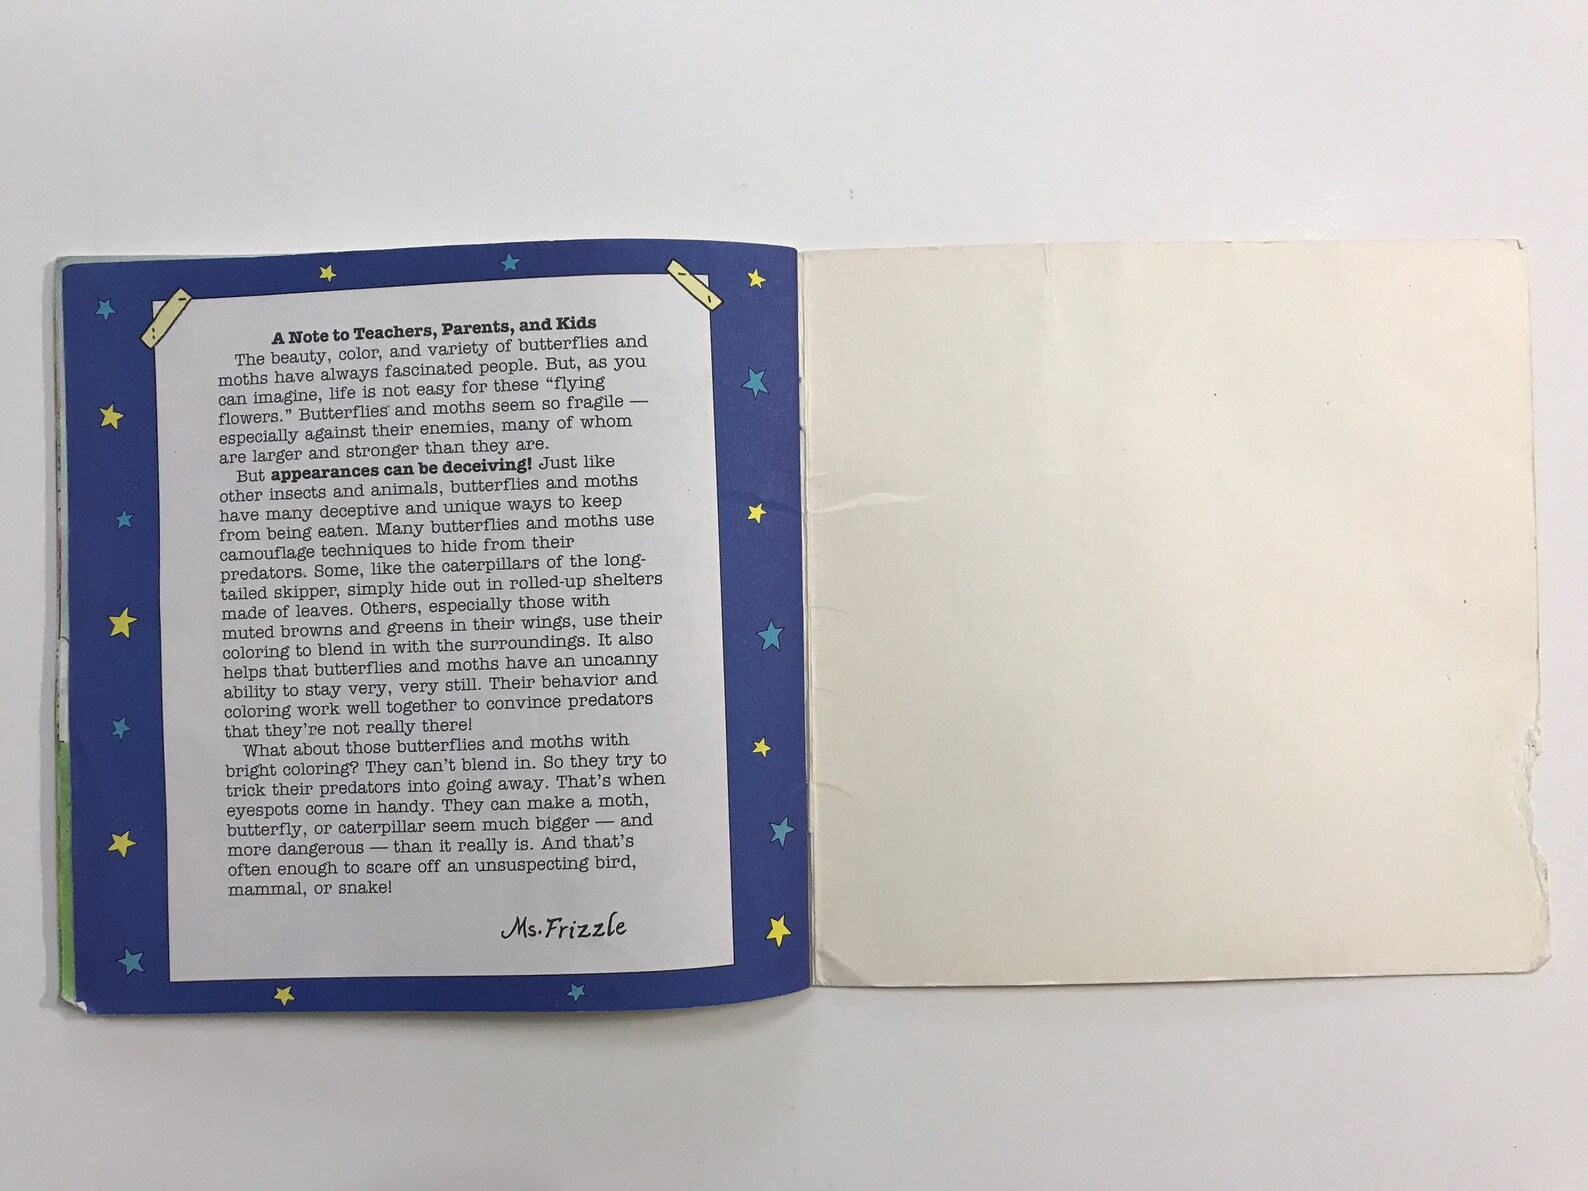 A Note to Teachers, Parents, and Kids
The beauty, color, and variety of butterflies and
moths have always fascinated people. But, as you
can imagine, life is not easy for these “flying
flowers.” Butterflies and moths seem so fragile —
especially against their enemies, many of whom
are larger and stronger than they are.
But appearances can be deceiving! Just like
other insects and animals, butterflies and moths
have many deceptive and unique ways to keep
from being eaten. Many butterflies and moths use
camouflage techniques to hide from their
predators. Some, like the caterpillars of the long-
tailed skipper, simply hide out in rolled-up shelters
made of leaves. Others, especially those with
muted browns and greens in their wings, use their
coloring to blend in with the surroundings. It also
helps that butterflies and moths have an uncanny
ability to stay very, very still. Their behavior and
coloring work well together to convince predators
that they’re not really there!
What about those butterflies and moths with
bright coloring? They can’t blend in. So they try to
trick their predators into going away. That’s when
eyespots come in handy. They can make a moth,
butterfly, or caterpillar seem much bigger — and
more dangerous — than it really is. And that’s
often enough to scare off an unsuspecting bird,
mammal, or snake!
Ms. Frizzle